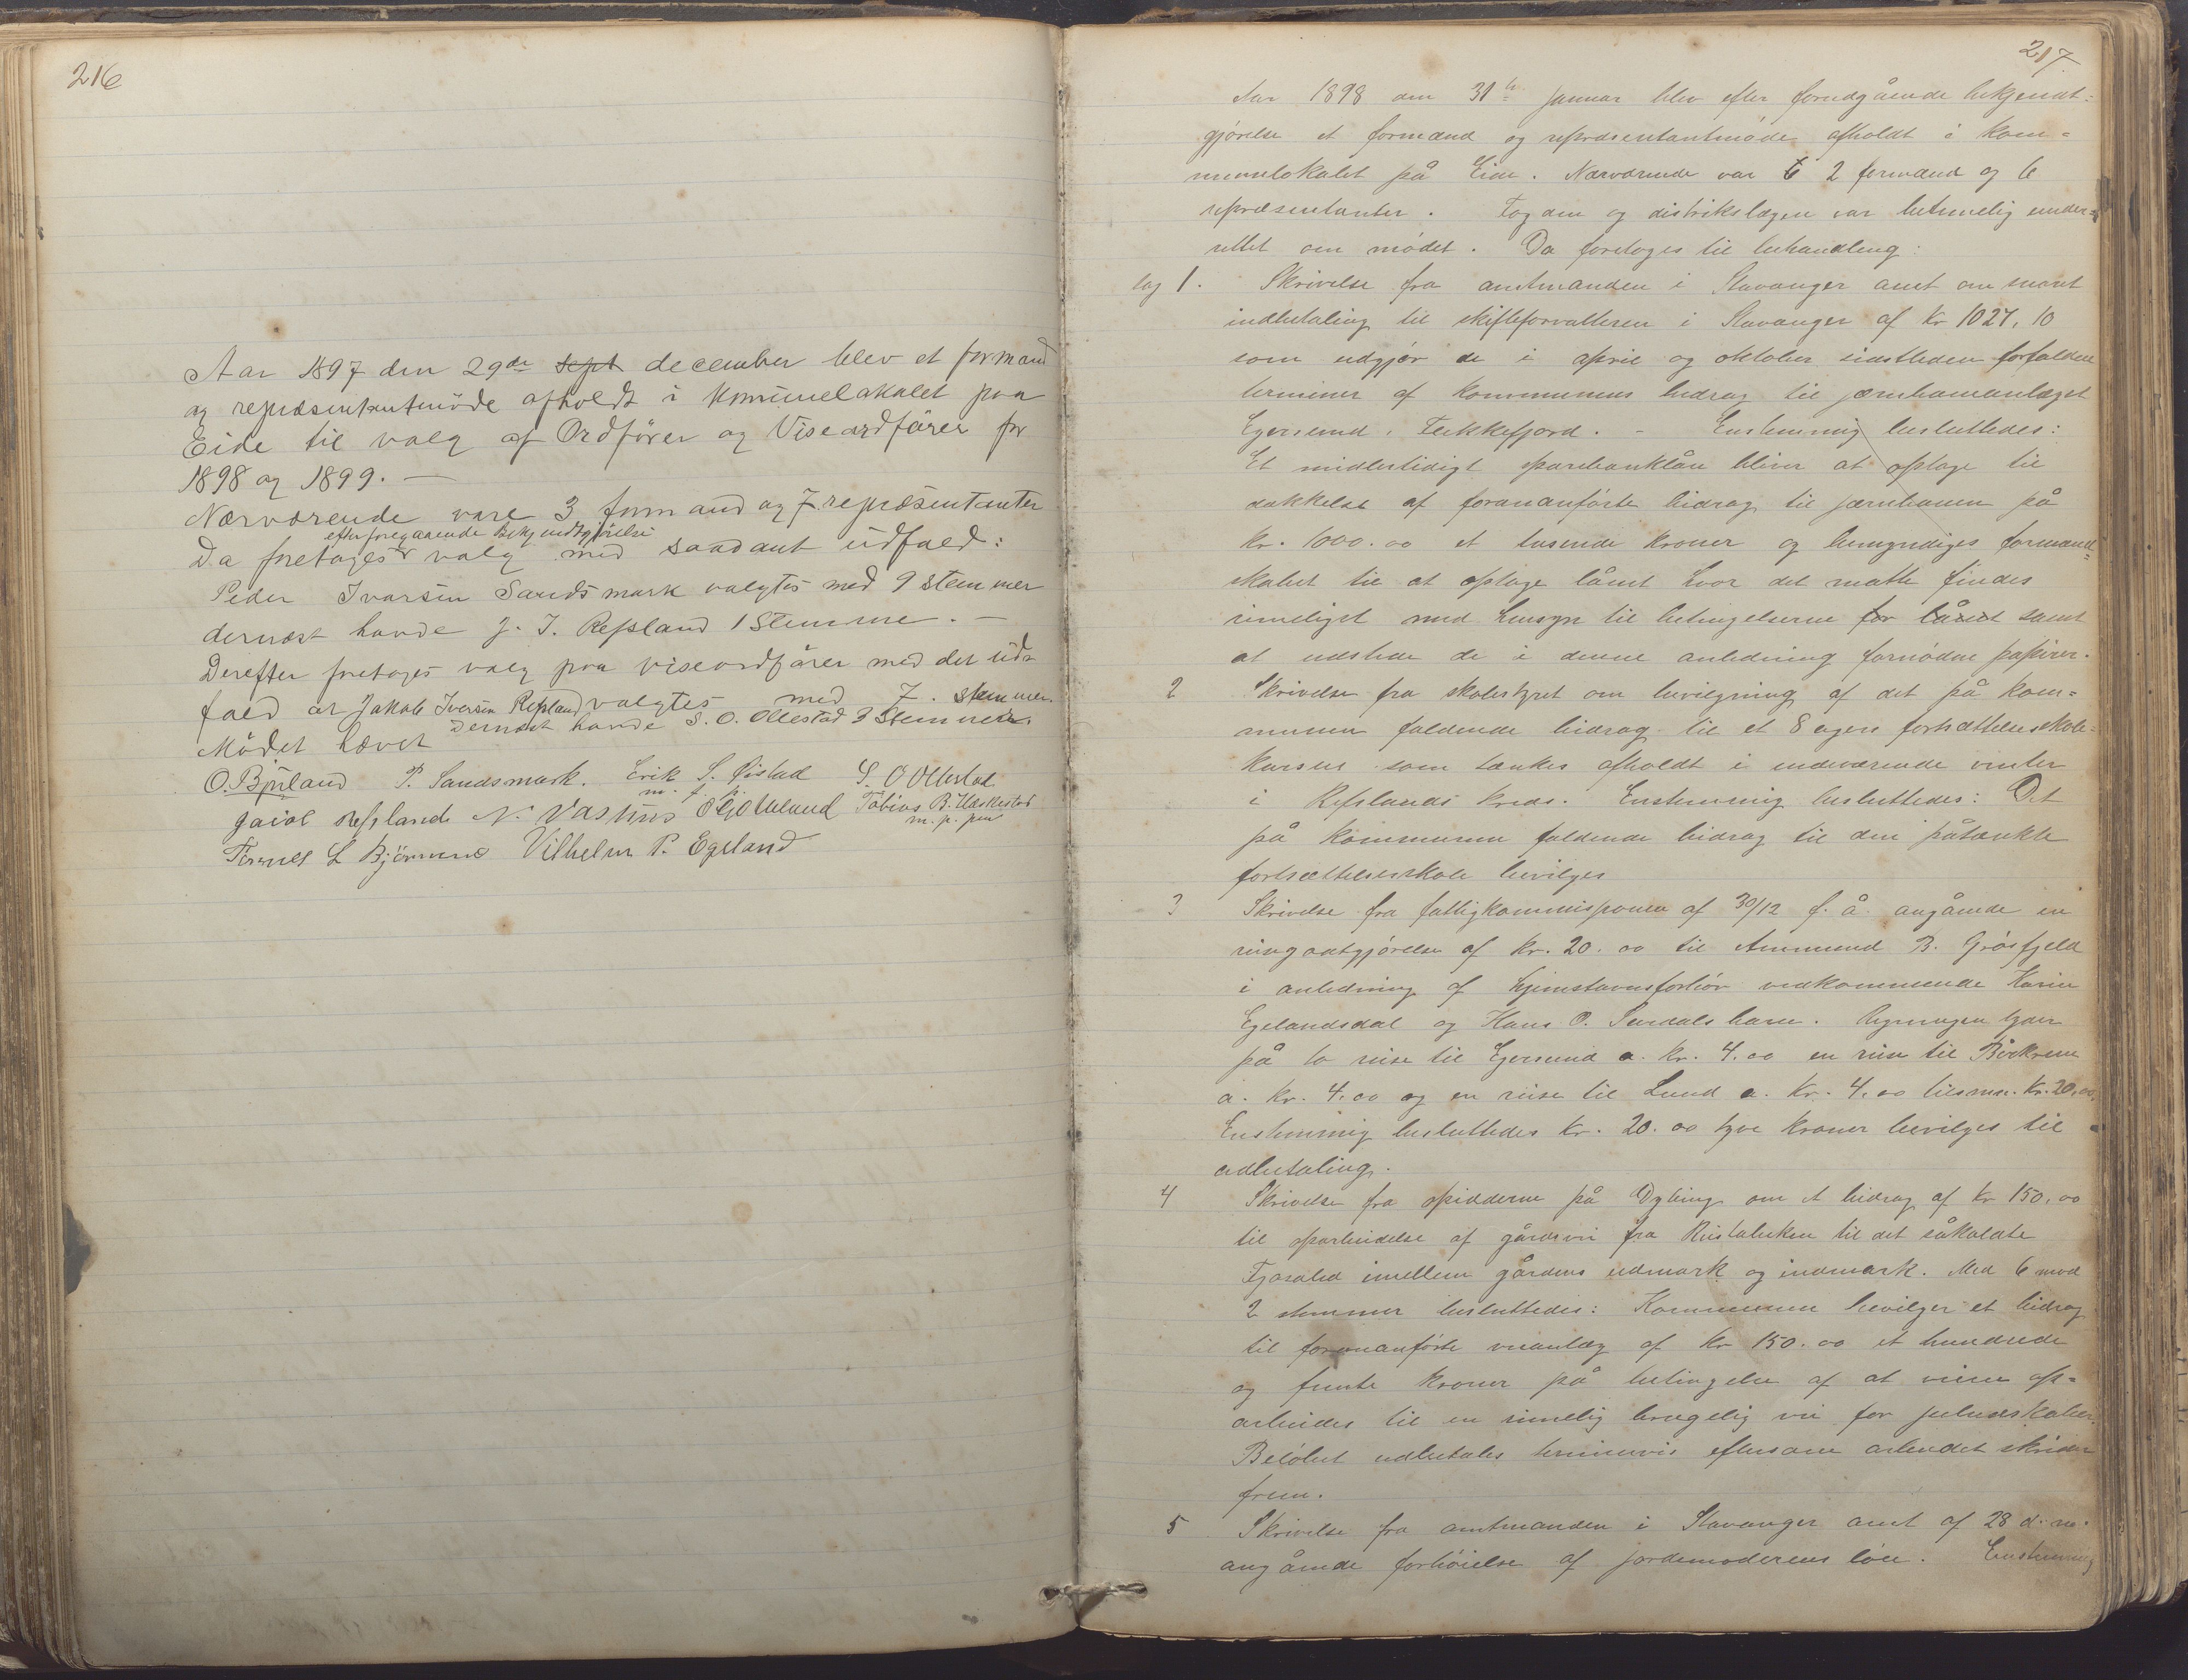 216
Aar 1897 den 29de sept december blev et formand
og repræsentantmøde afholdt i kommunelokalet paa
Eide til valg af Ordfører og Viseordfører for
1898 og 1899. —
Nærværende vare 3 formand og 7 repræsentanter
efter foregaaende Bekjendtgjørelse
Da foretoges valg med saadant udfald:
Peder Ivarsen Sandsmark valgtes med 9 stemmer
dernæst havde J. I. Refsland 1 Stemme. —
Derefter foretoges valg paa viseordfører med det ud-
fald at Jakob Iversen Refsland valgtes med 7. stemmer.
Dernæst havde S. O. Ollestad 3 Stemmer.
Mødet hævet
O. Bjuland P. Sandsmark. Erik S. Øistad S. O Ollestad
m. f. p.
Refsland N. Vashus Tobias B. Haskestad
m. p. pen
L Bjørnmo Vilhelm P. Egeland
217
Aar 1898 den 31te januar blev efter forudgående bekjendt-
gjørelse et formænd og repræsentantmøde afholdt i kom-
munelokalet på Eide. Nærværende var 6 2 formænd og 6
repræsentanter. Fogden og distrikslægen var betimelig under-
rettet om mødet. Da foretoges til behandling:
Sag 1. Skrivelse fra amtmanden i Stavanger amt om snart
indbetaling til skifteforvalteren i Stavanger af kr 1027,10
som udgjør de i april og oktober sidstleden forfaldne
terminer af kommunens bidrag til jernbaneanlæget
Egersund, Flekkefjord. - Enstemmig besluttedes:
Et midlertidigt sparebanklån bliver at optage til
dækkelse af forananførte bidrag til jernbanen på
kr. 1000.00 et tusende kroner og bemyndiges formænd-
skabet til at optage lånet hvor det måtte findes
rimeligst med hensyn til betingelserne for lånet samt
at udstede de i denne anledning fornødne papirer.
2 Skrivelse fra skolestyret om bevilgning af det på kom-
munen faldende bidrag til et 8 ugers fortsættelsesskole-
kursus som tænkes afholdt i indeværende vinter
i Refslands kreds. Enstemmig besluttedes: Det
på kommunen faldende bidrag til den påtænkte
fortsættelsesskole bevilges
3 Skrivelse fra fattigkommissionen af 30/12 f. å. angående en
reisegodtgjørelse af kr. 20.00 til Ammund B. Grøsfjeld
i anledning af hjemstavnsforhør vedkommende Karin
Egelandsdal og Hans O. Surdals barn. Regningen lyder
på to reise til Egersund a. kr. 4.00 en reise til Birkrem
a. kr. 4.00 og en reise til Lund a. kr. 4.00 tilsmn. kr. 20,00.
Enstemmig besluttedes kr. 20.00 tyve kroner bevilges til
udbetaling.
4 Skrivelse fra opsidderne på Dybing om et bidrag af kr 150,00
til oparbeidelse af gårdsvei fra Ristabakken til det såkaldte
Fjosaled imellem gårdens udmark og indmark. Med 6 mod
2 stemmer besluttedes: Kommunen bevilger et bidrag
til forananførte veianlæg af kr 150.00 et hundrede
og femti kroner på betingelse af at veien op-
arbeides til en rimelig brugelig vei for hjulredskaber.
Beløbet udbetales terminvis eftersom arbeidet skrider
frem.
5 Skrivelse fra amtmanden i Stavanger amt af 28 d. m.
angående forhøielse af jordemoderens løn. Enstemmig